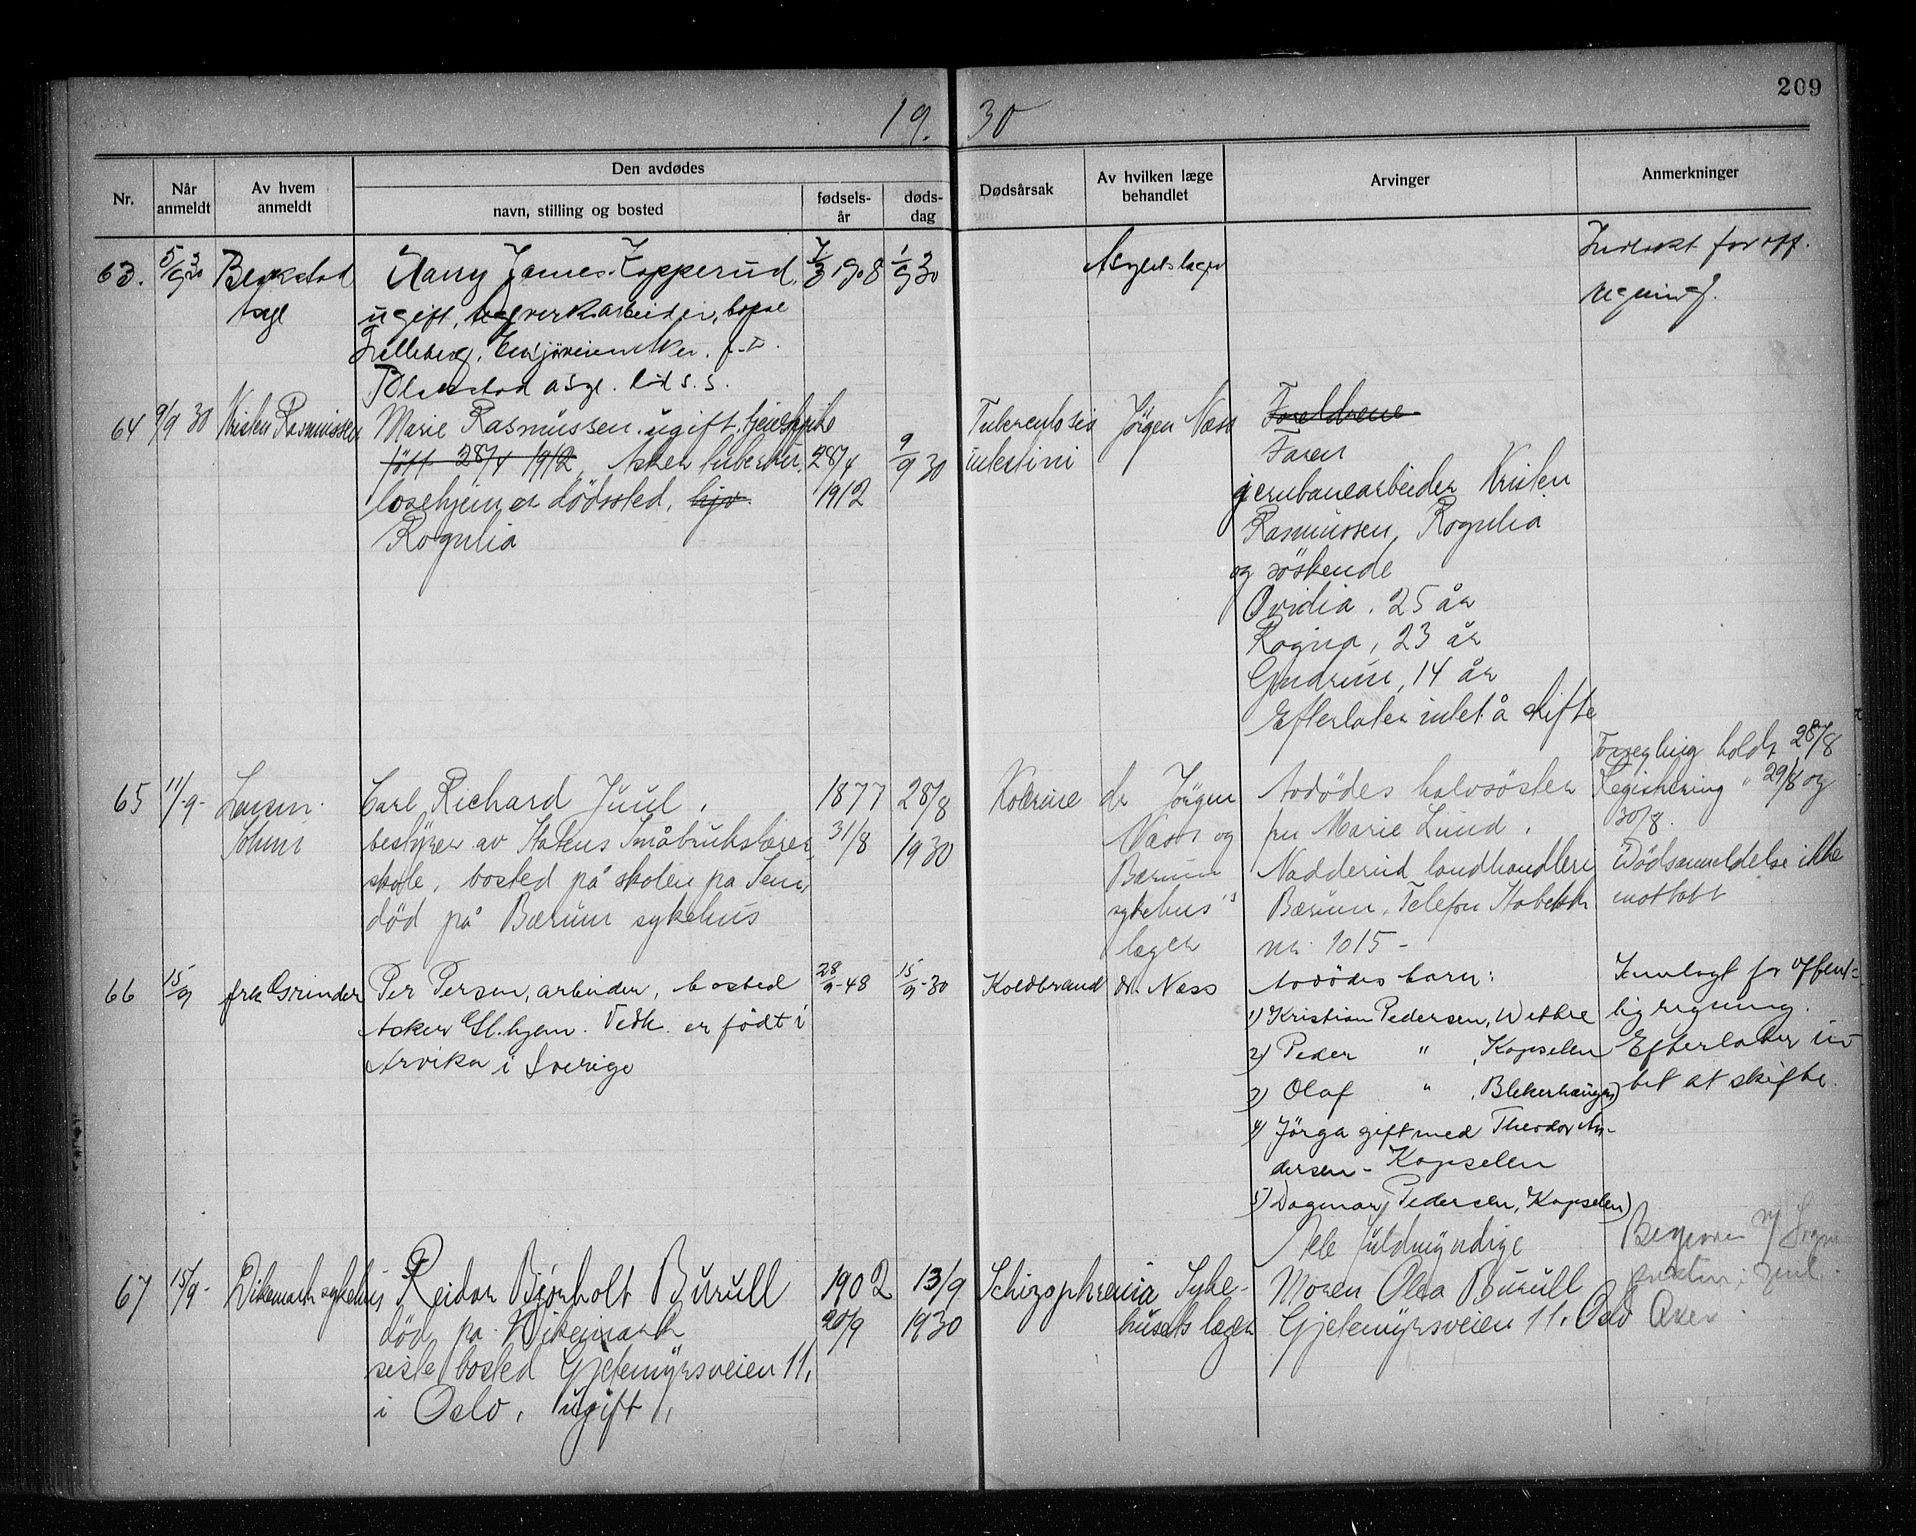 209
19. 30
Nr.
Når anmeldt
Av hvem anmeldt
Den avdødes
navn, stilling og bosted
fødsels-år
døds-dag
Dødsårsak
Av hvilken læge behandlet
Arvinger
Anmerkninger
63.
Harry James
1908
1/9 30
Asylets læger
ugift,
Asker
asyl
for off.
64 9/9 30 Kristen Rasmussen
Marie Rasmussen, ugift,
født 28/4 1912, Asker tuberku-
losehjem er dødssted,
Rogulia
28/4
1912
9/9 30
Tuberculosis
intestini
Jörgen Næss
Foreldrene
Faren
jernbanearbeider Kristen
Rasmussen, Rogulia
og söskende
Ovidia, 25 år
Ragna, 23 år
Gudrun, 14 år
Efterlater intet å skifte
65 11/-9-
Carl Richard Juul,
bestyrer av Statens Småbrukslærer
skole, bosted på skolen på Sem,
död på Bærum sykehus
1877
31/8
28/8
1930
dr Jörgen
Næss og
Bærum
sykehus's
læger
Avdödes halvsöster
fru Marie Lund,
Nadderud landhandleri
Bærum, Telefon Stabekk
nr. 1015 -
Forsegling holdt 28/8
Registrering " 29/8 og
30/8.
Dödsanmeldelse ikke
mottatt
66 15/9 frk Grinder
Per Persen, arbeider, bosted
Asker Gl.hjem. Vedk. er födt i
Arvika i Sverige
28/9-48
15/9-30
Koldbrand
dr. Næss
Avdödes barn:
1) Kristian Pedersen, Wettre
2) Peder " , Kopselen
3) Olaf " , Blekerhaugen)
4) Jörga gift med Theodor An-
dersen - Kopselen
5) Dagmar Pedersen, Kopselen)
Alle fuldmyndige
Innlagt for offent-
lig regning.
Efterlater in-
tet at skifte.
67 15/9- Dikemark sykehus
Reidar Bjönholt Burull
död på Dikemark
siste bosted Gjetemyrsveien 11,
i Oslo, ugift,
1902
20/9
13/9
1930
Schizophrenia
Syke-
husets læger
Moren Olea Burull
Gjetemyrsveien 11, Oslo